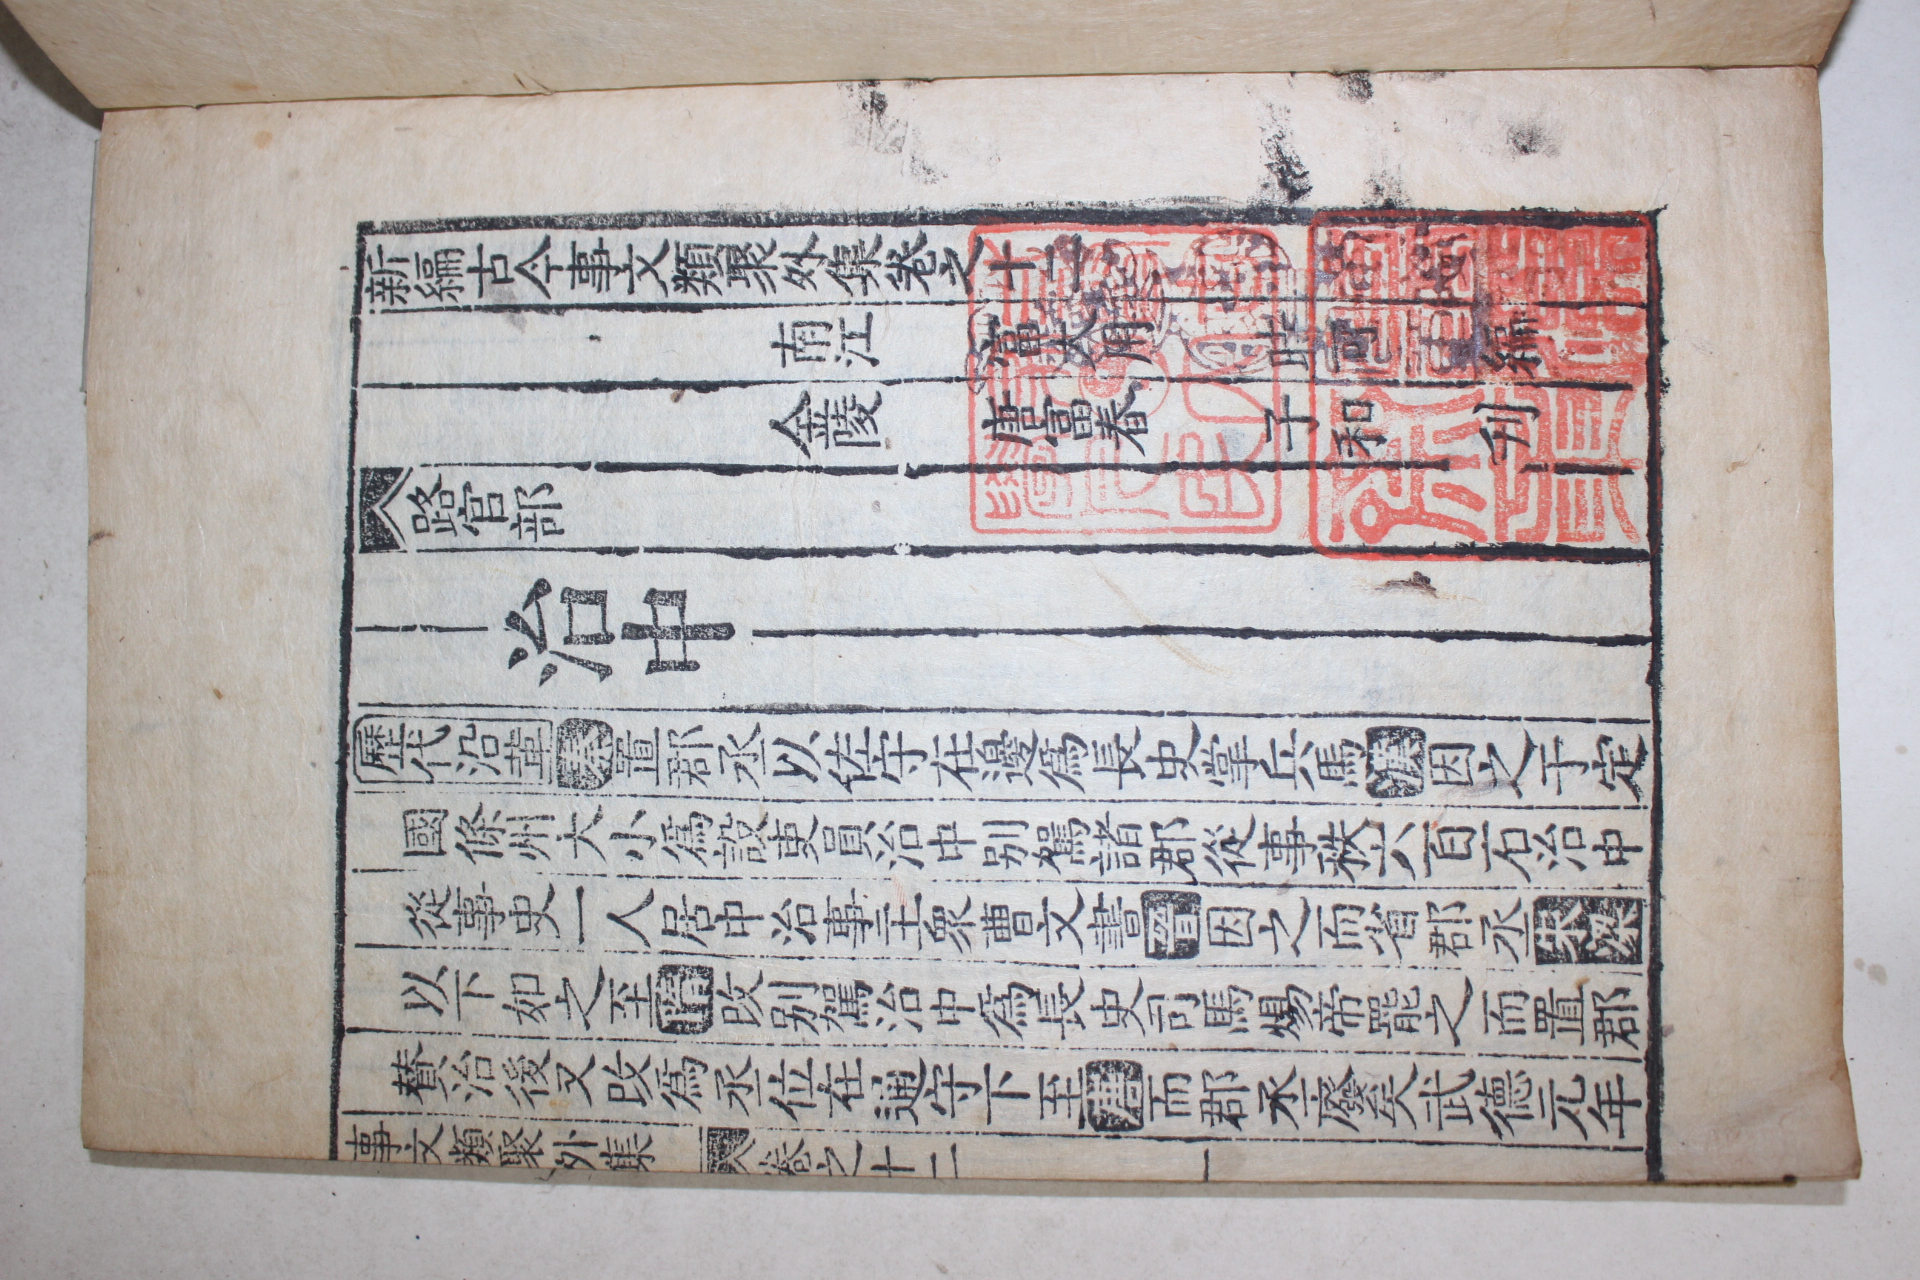 新編古今事文類聚外集卷之十二
南江 富大用 時可 編
金陵 唐富春 子和 刊
路官部
治中
歷代沿革秦置郡丞以佐守在邊爲長史掌兵馬漢因之于定
國條州大小爲設吏員治中別駕諸郡從事秩六百石治中
從事史一人居中治事主衆曹文書晉因之而省郡丞宋梁
以下如之至隋改別駕治中爲長史司馬煬帝罷之而置郡
賛治後又改爲丞位在通守下至唐而郡丞廢矣武德元年
事文類聚外集 卷之十二 一